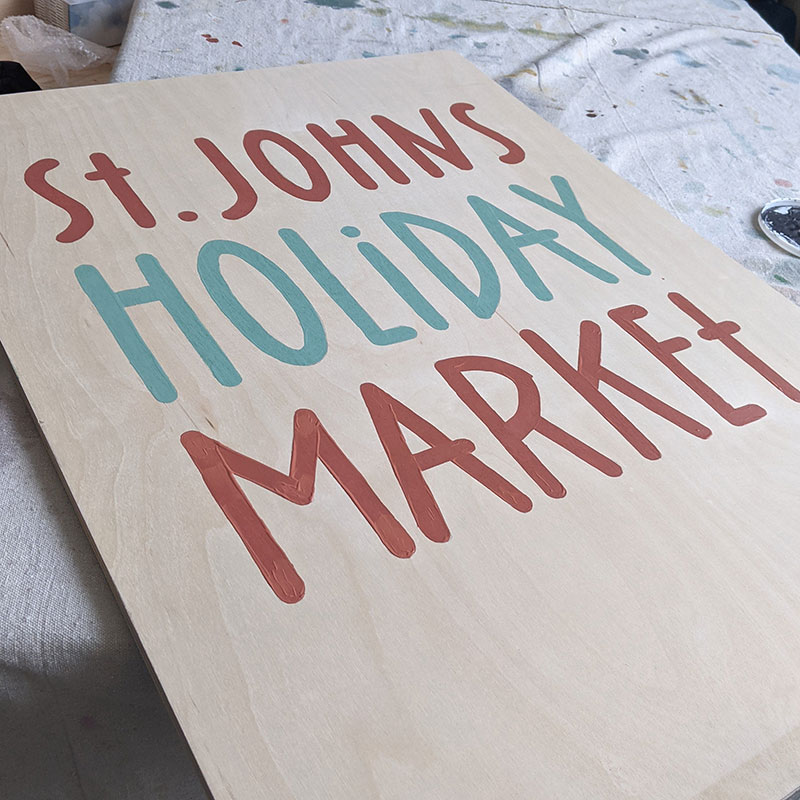 St. JOHNS
HOLiDAY
MARKEt